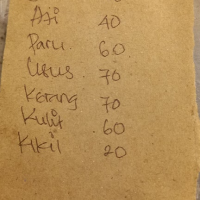 Ati 40
Paru 60
Usus 70
Kerang 70
Kulit 60
Kikil 20